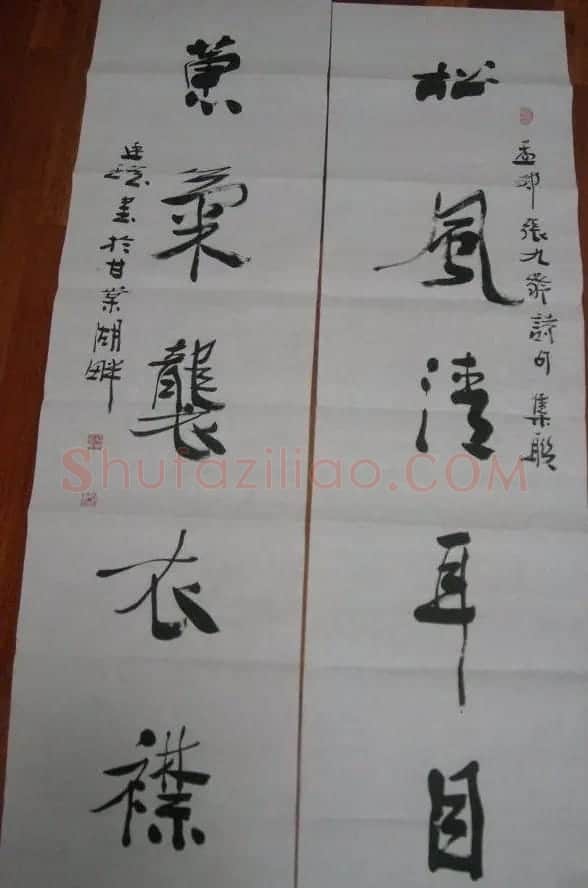 松風清耳目
孟郊張九齡詩句集聯
蕙氣襲衣襟
書於甘棠湖畔
Shufaziliao.COM